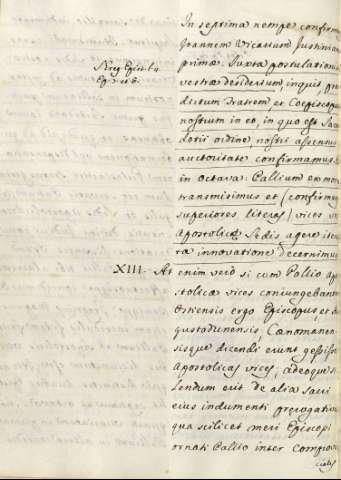 In septima nempe confirm
Joannem Vicarium Justinian
prima. Juxta postulationis
vestrae desiderium, inquit, prae
dictum Fratrem, et Coepiscopu
nostrum in eo, in quo est Sace
dotii ordine nostri assensus
auctoritate confirmamus
in octava: Pallium ex more
transmisimus et (confirman
superiores literas) vices vos
Apostolicae Sedis agere itera
ta innovatione decernimus
XIII. At enim verò si cum Pallio apo
stolicae vices coniungebantu
Ostiensis ergo Episcopus, et
gustodunensis, Caenomanen
sisque dicendi erunt gessisse
Apostolicas vices, adeoque
lendum erit de alia sacri
eius indumenti prerogativa
qua scilicet meri Episcopi
ornati Pallio inter Comprovin
ciales
Greg. Epist. l. 2